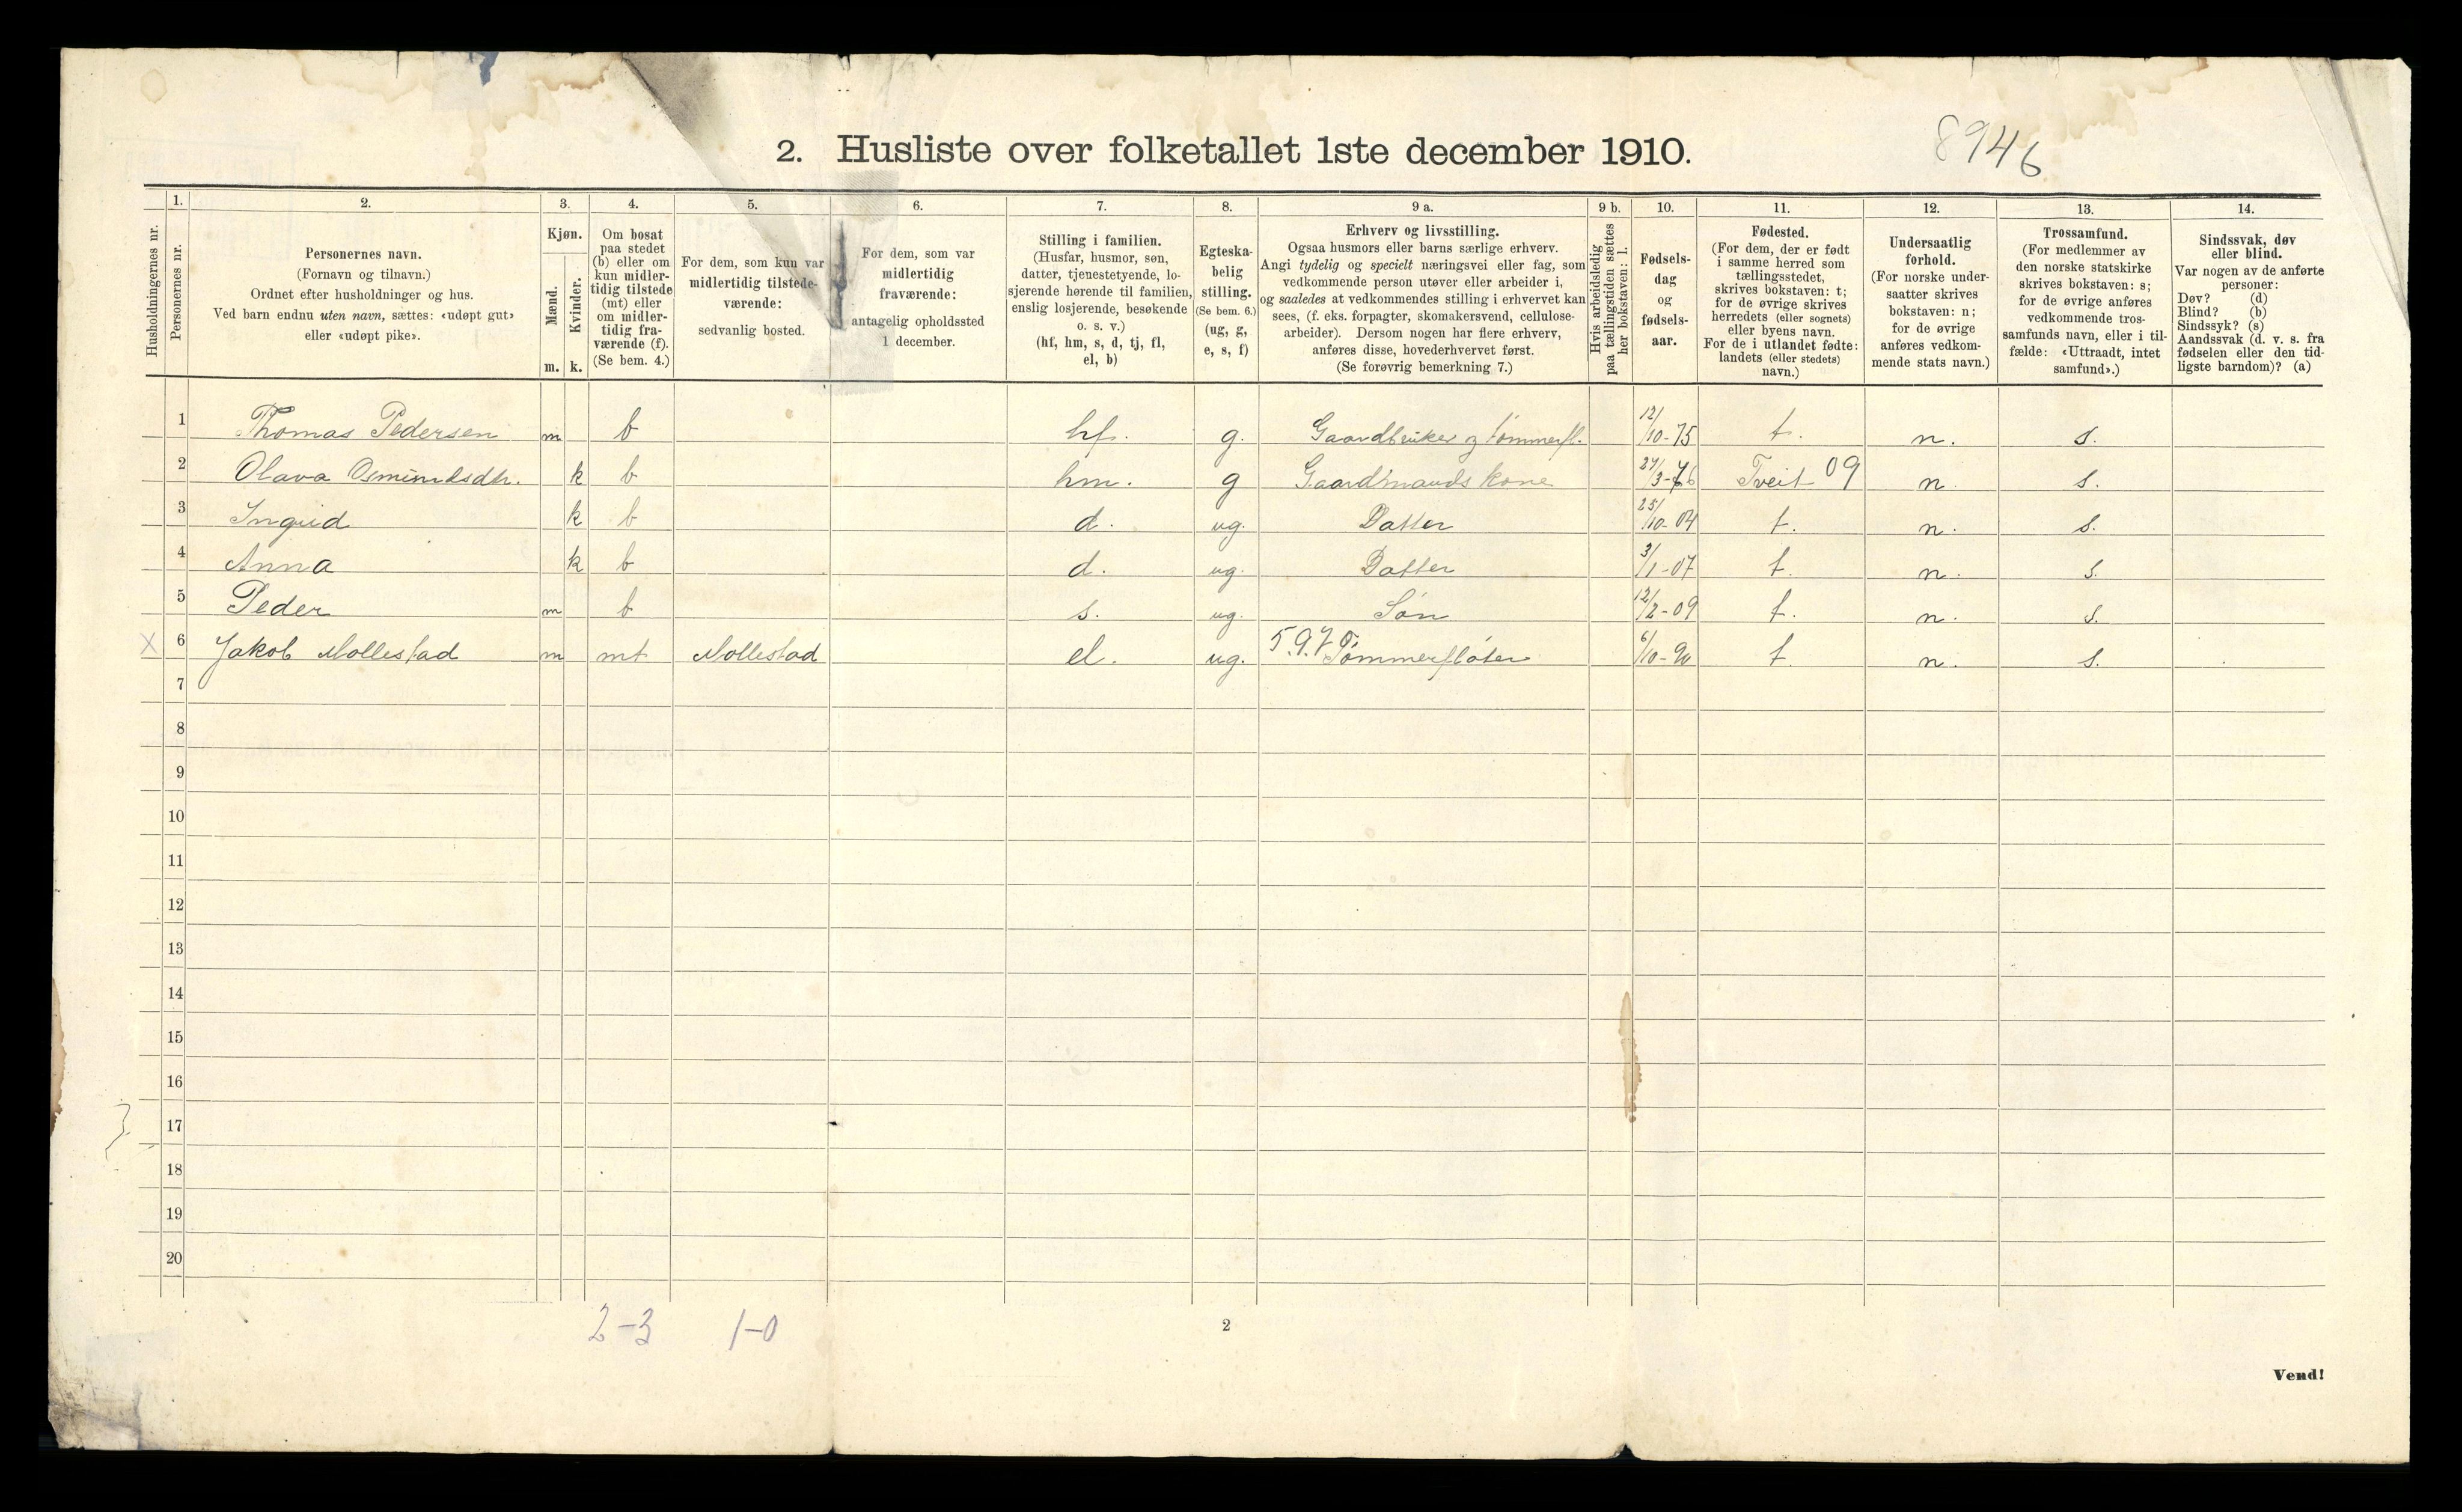 2. Husliste over folketallet 1ste december 1910.
8946
Husholdningernes nr.
1.
Personernes nr.
2.
Personernes navn.
(Fornavn og tilnavn.)
Ordnet efter husholdninger og hus.
Ved barn endnu uten navn, sættes: «udøpt gut»
eller «udøpt pike».
3.
Kjøn.
Mænd.
Kvinder.
m. k.
4.
Om bosat
paa stedet
(b) eller om
kun midler-
tidig tilstede
(mt) eller
om midler-
tidig fra-
værende (f).
(Se bem. 4.)
5.
For dem, som kun var
midlertidig tilstede-
værende:
sedvanlig bosted.
6.
For dem, som var
midlertidig
fraværende:
antagelig opholdssted
1 december.
7.
Stilling i familien.
(Husfar, husmor, søn,
datter, tjenestetyende, lo-
sjerende hørende til familien,
enslig losjerende, besøkende
o. s. v.)
(hf, hm, s, d, tj, fl,
el, b)
8.
Egteska-
belig
stilling.
(Se bem. 6.)
(ug, g,
e, s, f)
9 a.
Erhverv og livsstilling.
Ogsaa husmors eller barns særlige erhverv.
Angi tydelig og specielt næringsvei eller fag, som
vedkommende person utøver eller arbeider i,
og saaledes at vedkommendes stilling i erhvervet kan
sees, (f. eks. forpagter, skomakersvend, cellulose-
arbeider). Dersom nogen har flere erhverv,
anføres disse, hovederhvervet først.
(Se forøvrig bemerkning 7.)
9 b.
Hvis arbeidsledig
paa tællingstiden sættes
her bokstaven: l.
10.
Fødsels-
dag
og
fødsels-
aar.
11.
Fødested.
(For dem, der er født
i samme herred som
tællingsstedet,
skrives bokstaven: t;
for de øvrige skrives
herredets (eller sognets)
eller byens navn.
For de i utlandet fødte:
landets (eller stedets)
navn.)
12.
Undersaatlig
forhold.
(For norske under-
saatter skrives
bokstaven: n;
for de øvrige
anføres vedkom-
mende stats navn.)
13.
Trossamfund.
(For medlemmer av
den norske statskirke
skrives bokstaven: s;
for de øvrige anføres
vedkommende tros-
samfunds navn, eller i til-
fælde: «Uttraadt, intet
samfund».)
14.
Sindssvak, døv
eller blind.
Var nogen av de anførte
personer:
Døv? (d)
Blind? (b)
Sindssyk? (s)
Aandssvak (d. v. s. fra
fødselen eller den tid-
ligste barndom)? (a)
1 Thomas Pedersen m b hf. g. Gaardbruker og tømmerfl. 12/10-75 t. n. s.
2 Olava Osmundsdtr. k b hm. g Gaardmands kone 24/3-76 Tveit 09 n s.
3 Ingrid k b d. ug. Datter 25/10-04 t. n. s.
4 Anna k b d. ug. Datter 3/1-07 t. n. s.
5 Peder m b s. ug. Søn 12/2-09 t. n. s.
X 6 Jakob Mollestad m mt Mollestad el. ug. 5.9.7 Tømmerfløter 6/10-90 t. n. s.
7
8
9
10
11
12
13
14
15
16
17
18
19
20
2-3 1-0
2
Vend!